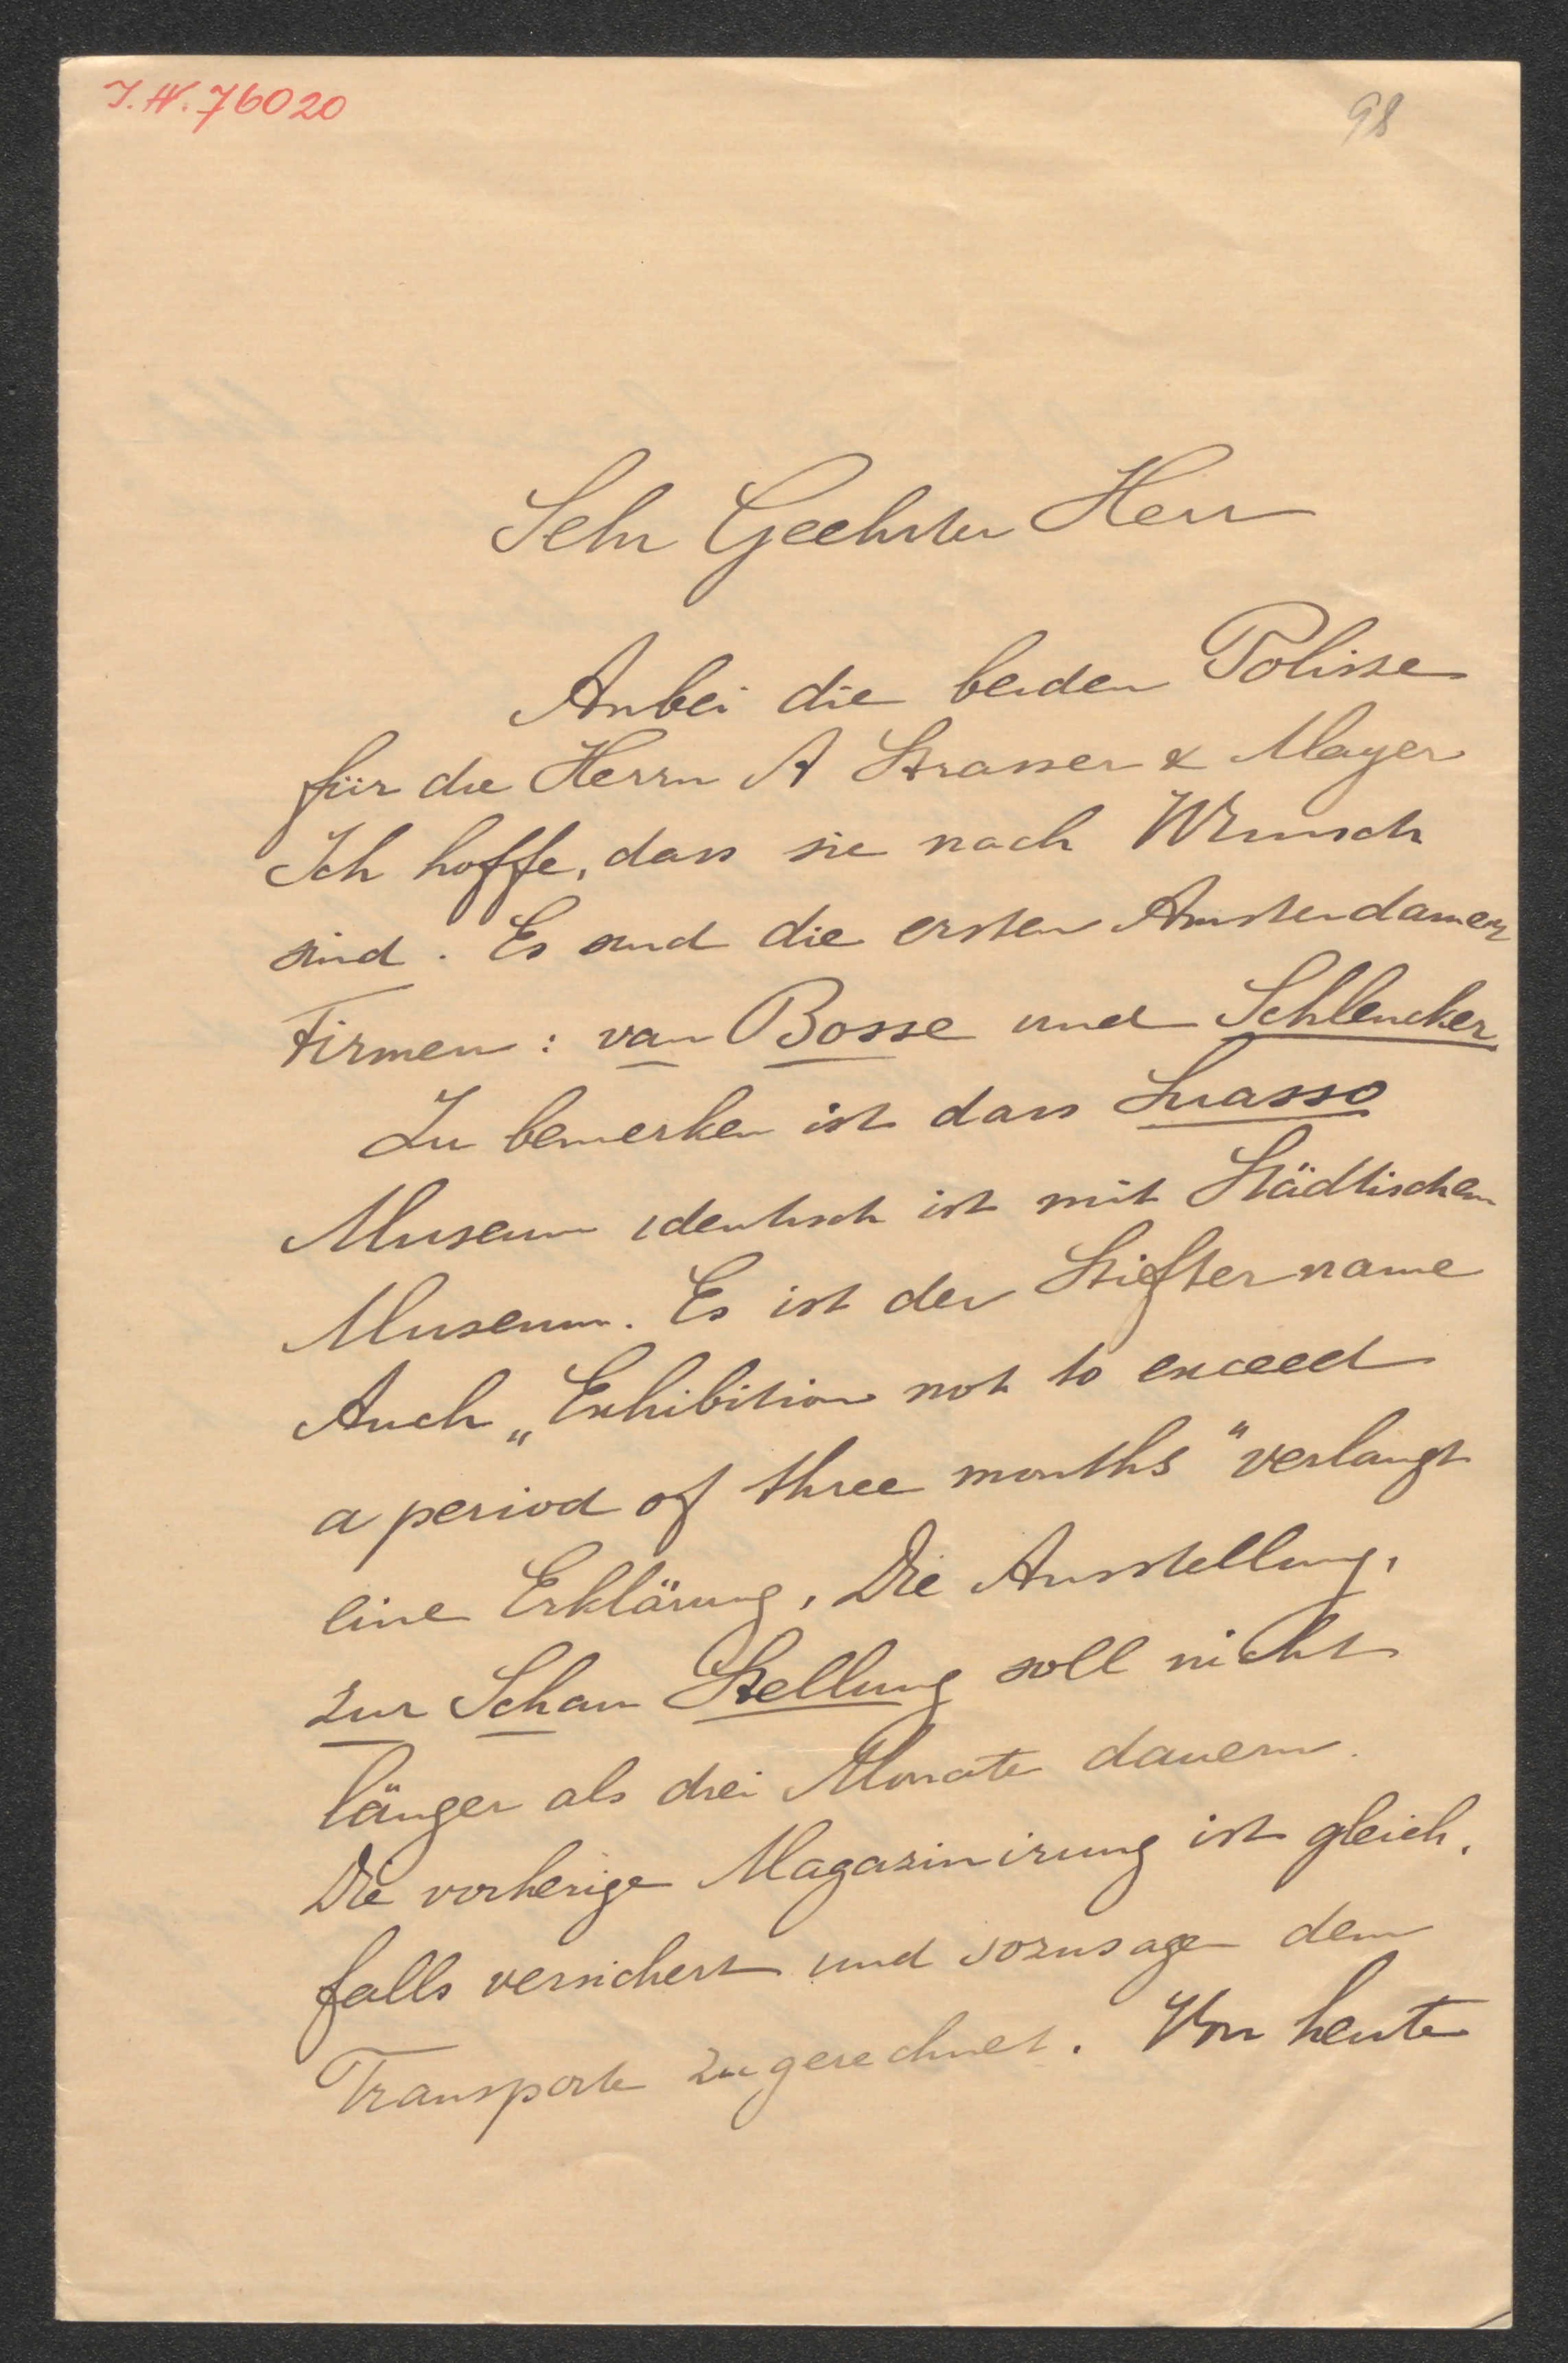 J.N. 76020
98
Sehr Geehrter Herr
Anbei die beiden Polisse
für die Herrn A Strasser & Mayer
Ich hoffe, dass sie nach Wunsch
sind. Es sind die ersten Amsterdamer
Firmen: van Bosse und Schlencker
Zu bemerken ist dass Suasso
Museum identisch ist mit Städtischem
Museum. Es ist der Stiftername
Auch „Exhibition not to exceed
a period of three months" verlangt
eine Erklärung. Die Ausstellung,
zur Schau Stellung soll nicht
länger als drei Monate dauern.
Die vorherige Magazinirung ist gleich.
falls versichert und sozusagen dem
Transporte zugerechnet. Von heute